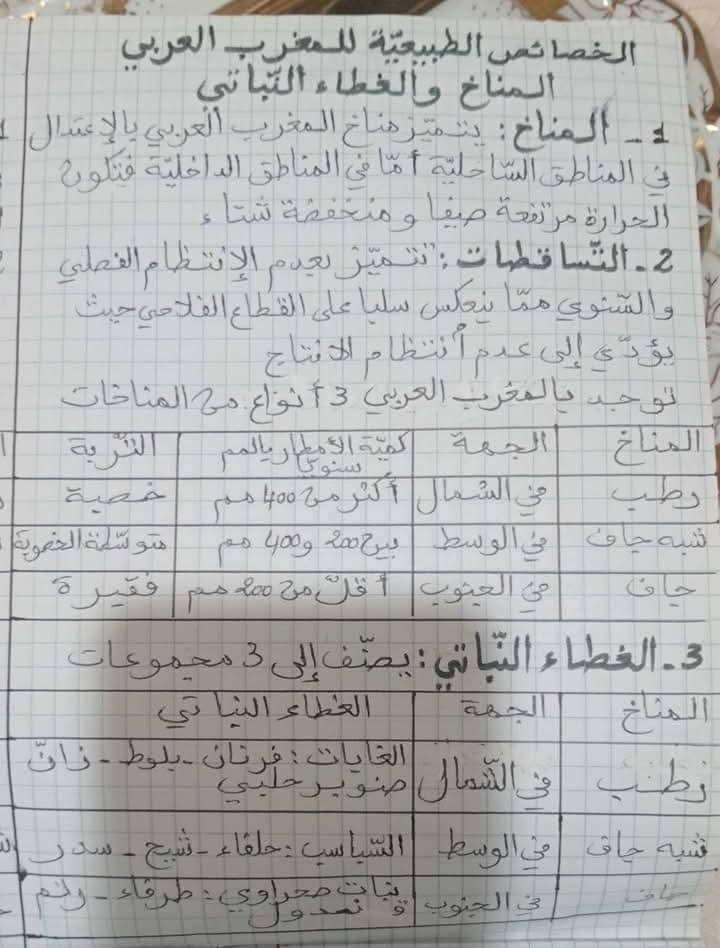 الخصائص الطبيعيّة للمغرب العربي
المناخ والغطاء النّباتي
1- المناخ: يتميّز مناخ المغرب العربي بالإعتدال
في المناطق السّاحليّة أمّا في المناطق الداخليّة فتكون
الحرارة مرتفعة صيفا ومنخفضة شتاء
2- التّساقطات: تتميّز بعدم الإنتظام الفصلي
والسّنوي ممّا ينعكس سلبا على القطاع الفلاحي حيث
يؤدّي إلى عدم أنتظام الانتاج
توجد بالمغرب العربي 3 أنواع من المناخات
المناخ الجهة كميّة الأمطار بالمم سنويّا التّربة
رطب في الشمال أكثر من 400 مم خصبة
شبه جاف في الوسط بين 200 و 400 مم متوسّطة الخصوبة
جاف في الجنوب أقلّ من 200 مم فقيرة
3- الغطاء النّباتي: يصنّف إلى 3 مجموعات
المناخ الجهة الغطاء النباتي
رطب في الشّمال الغابات: فرنان - بلوط - زانّ
صنوبر حلبي
شبه جاف في الوسط السّباسب: حلفاء - شيح - سدر
جاف في الجنوب نبات صحراوي: طرفاء - رتم